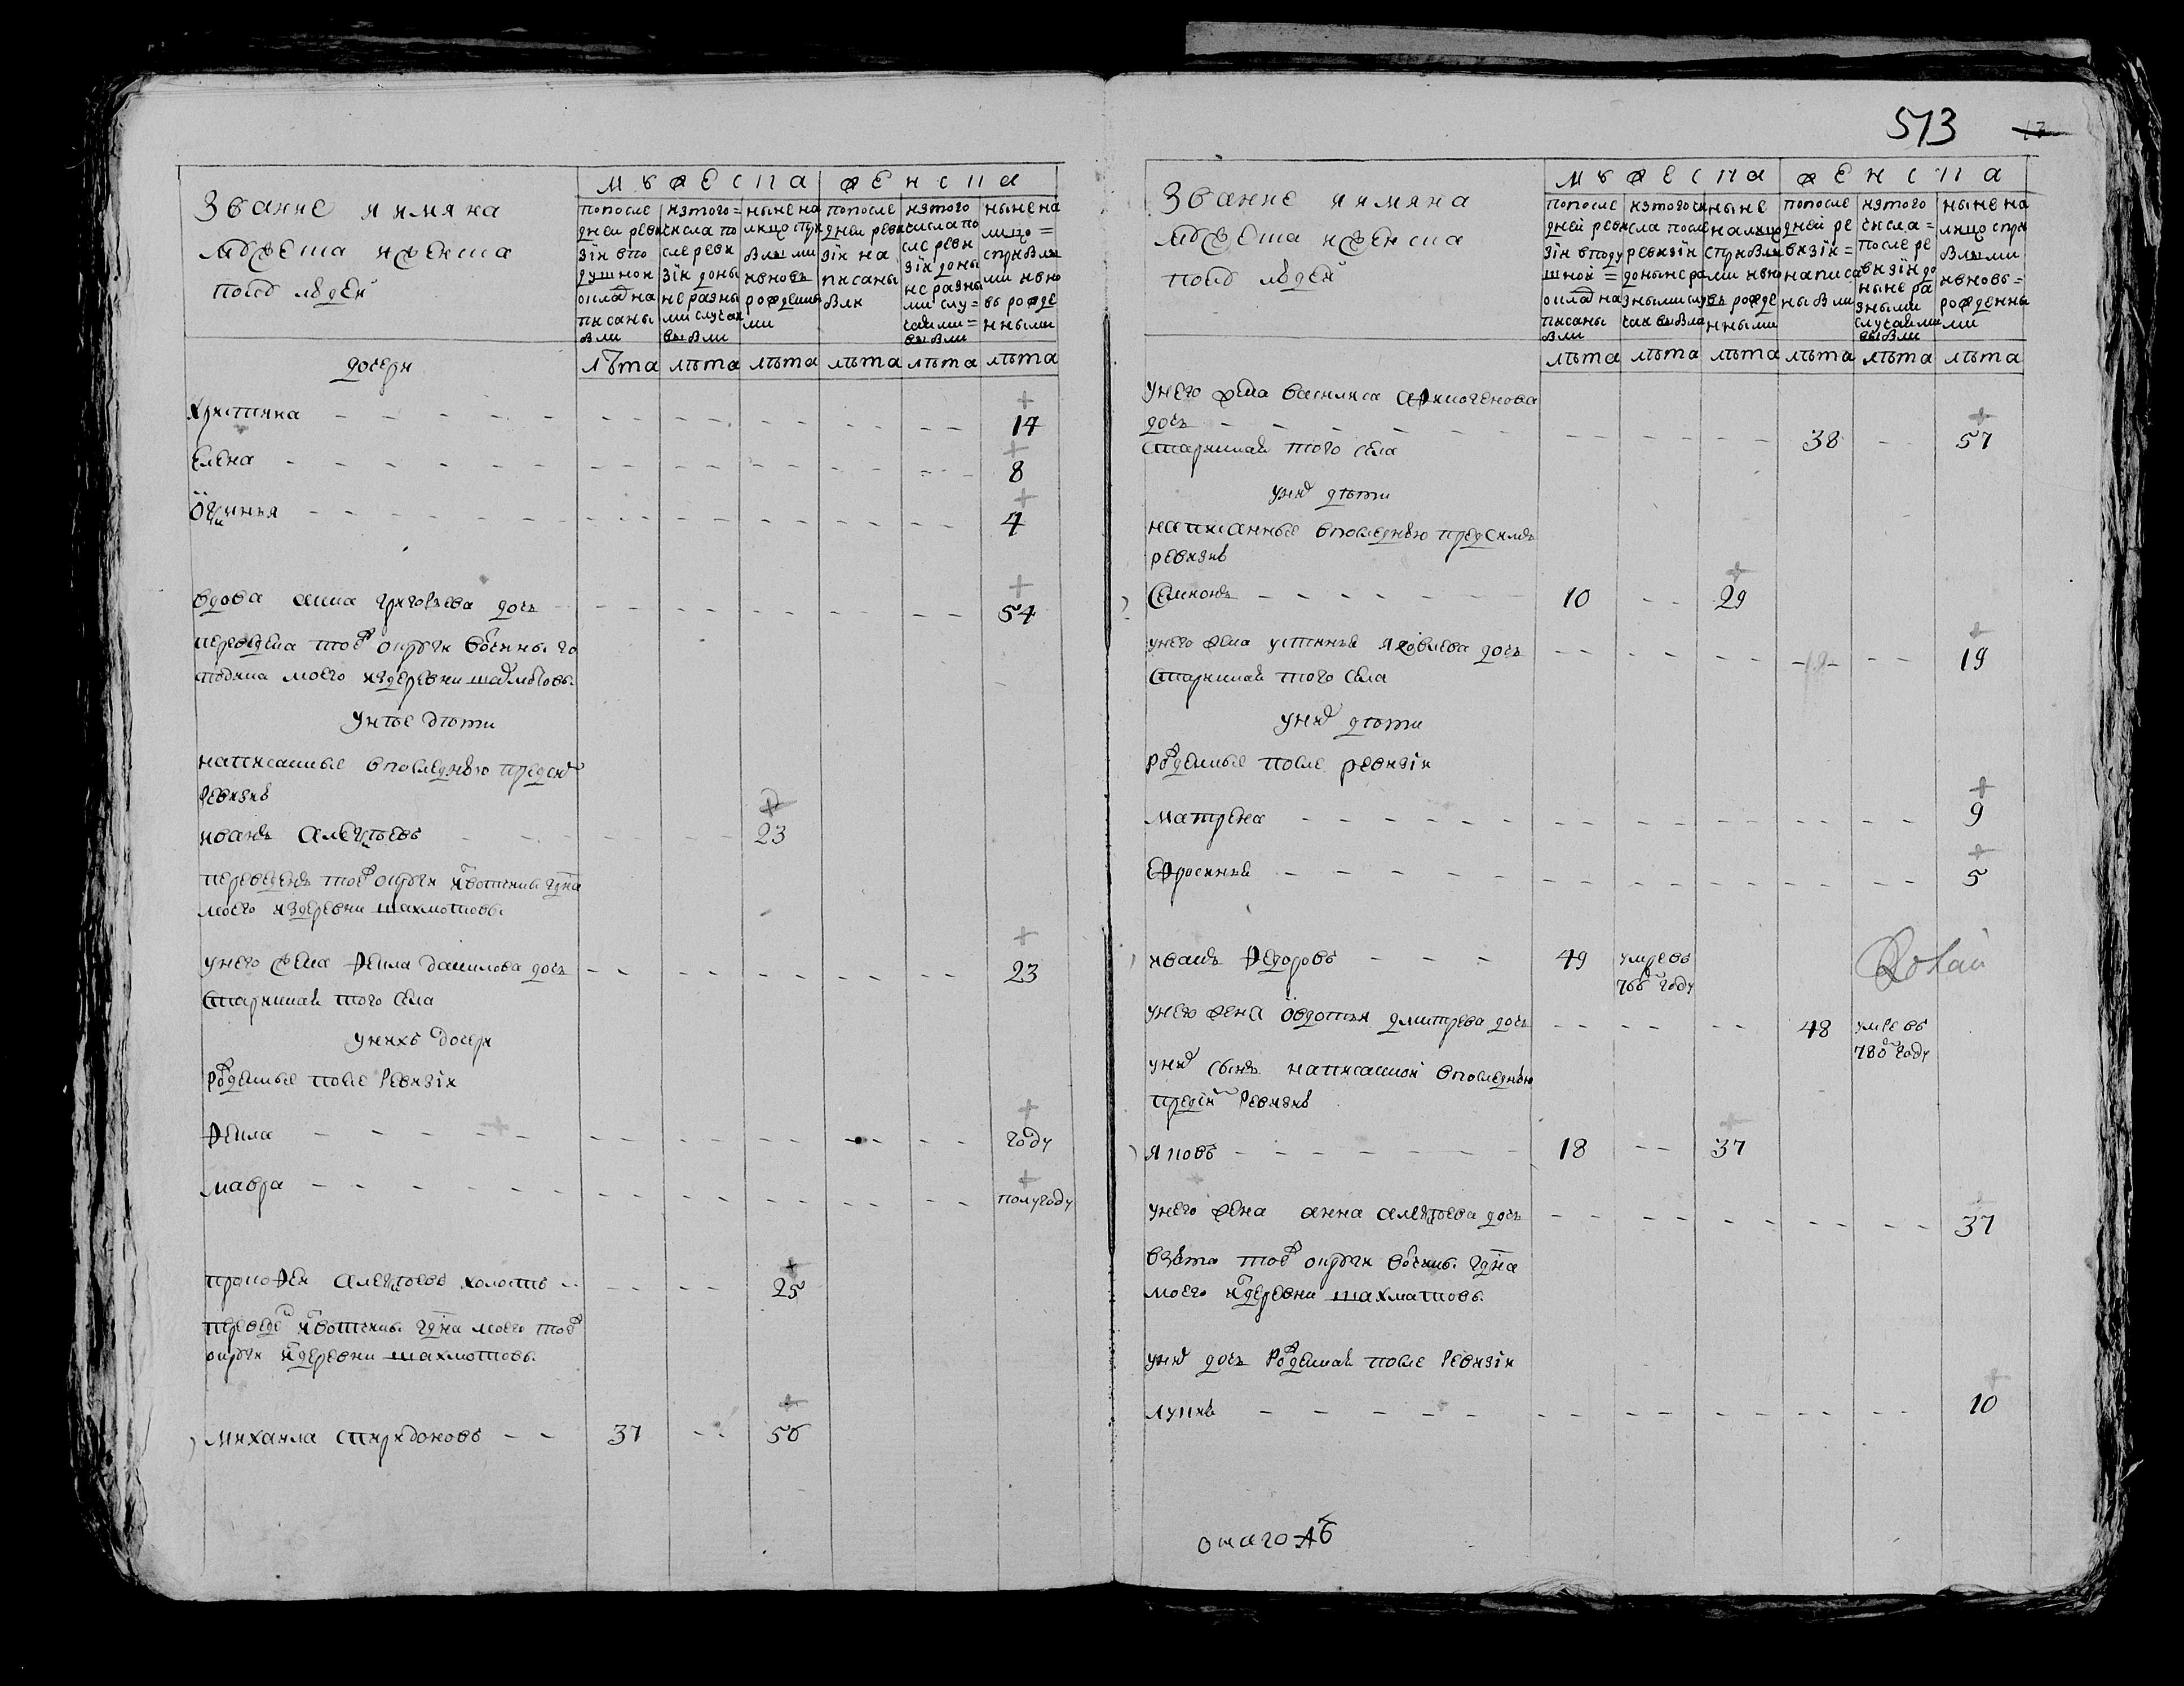 Званiе и имяна
мужеска и женска
полу людей
мужеска
женска
попосле
дней реви
зiи впо
душной
оклад на
писаны
были
изтого=
числа по
сле реви
зiи доны
не разны
ми случаи
выбыли
ныне на
лицо спри
былыми
ивновь
рожденны
ми
попосле
дней реви
зiи на
писаны
были
изтого
числа по
сле реви
зiи доны
не разны
ми слу=
чаими=
выбыли
ныне на
лицо=
сприбылы
ми ивно
вь рожде
нными
лѣта лѣта лѣта лѣта лѣта лѣта
дочери
Христина 14
Елена 8
Офимья 4
вдова анна григорьева дочь 54
переведена той округи вотчины го
сподина моего издеревни шахматовы
унѣе дѣти
написанные впоследнюю пред сим
ревизию
иванъ алексѣевъ 23
переведенъ той округи извотчины гдна
моего издеревни шахмотовы
унего жена фекла данилова дочь 23
старинная того села
унихъ дочери
рожденные после ревизiи
фекла году
мавра полугоду
прокофеи алексѣевъ холостъ 25
переведе извотчины гдна моего той
округи издеревни шахмотовы
михаила спиридоновъ 37 56
513
Званiе и имяна
мужеска и женска
полу людей
мужеска
женска
попосле
дней реви
зiи вподу
шной=
оклад на
писаны
были
изтого чи
сла после
ревизiи
доныне ра
зными слу
чаи выбыли
ныне
налицо
сприбылы
ми ивно
вь рожде
нными
попосле
дней ре
визiи=
написа
ны были
изтого
числа=
после ре
визiи до
ныне ра
зными
случаими
выбыли
ныне на
лицо спри
былыми
ивновь=
рожденны
ми
лѣта лѣта лѣта лѣта лѣта лѣта
унего жена василиса афиногенова
дочь 38 57
старинная того села
уних дѣти
написанные впоследнюю предсимъ
ревизию
Симионъ 10 29
унего жена устинья яковлева дочь 19
старинная того села
уних дѣти
рожденные после ревизiи
матрена 9
Ефросинья 5
иванъ федоровъ 49 умре въ
766 году
унего жена овдотья дмитрева дочь 48 умре въ
780 году
уних сынъ написанной впоследнюю
предсим ревизию
яковъ 18 37
унего жена анна алексѣева дочь 37
взята той округи вотчины гдна
моего издеревни шахматовы
уних дочь рожденная после ревизiи
лукия 10